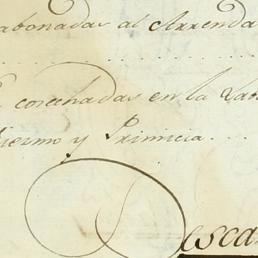 abonadas al Arrenda
cosechadas en la Lab
iermo y Primicia
Desca